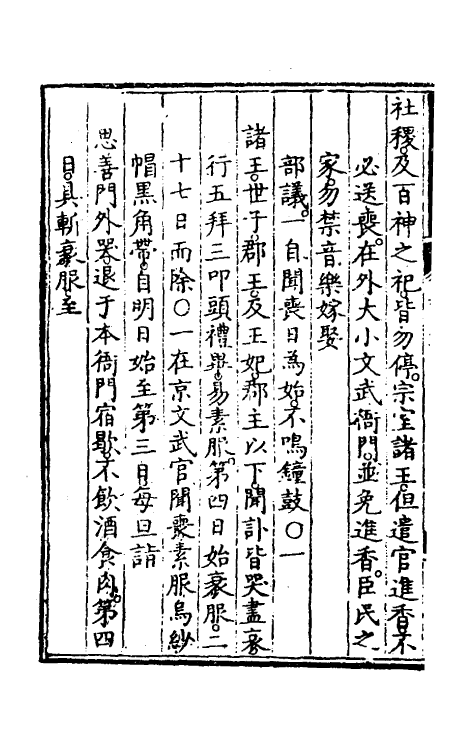 社稷及百神之祀皆勿停。宗室諸王但遣官進香不
必送喪。在外大小文武衙門並免進香。臣民之
家勿禁音樂嫁娶
部議。一自聞喪日為始不鳴鐘鼓〇一
諸王世子郡王及王妃郡主以下聞訃皆哭盡哀
行五拜三叩頭禮畢易素服。第四日始衰服。二
十七日而除〇一在京文武官聞喪素服烏紗
帽黑角帶自明日始至第三日每旦詣
思善門外哭退于本衙門宿歇不飲酒食肉。第四
日具斬衰服至